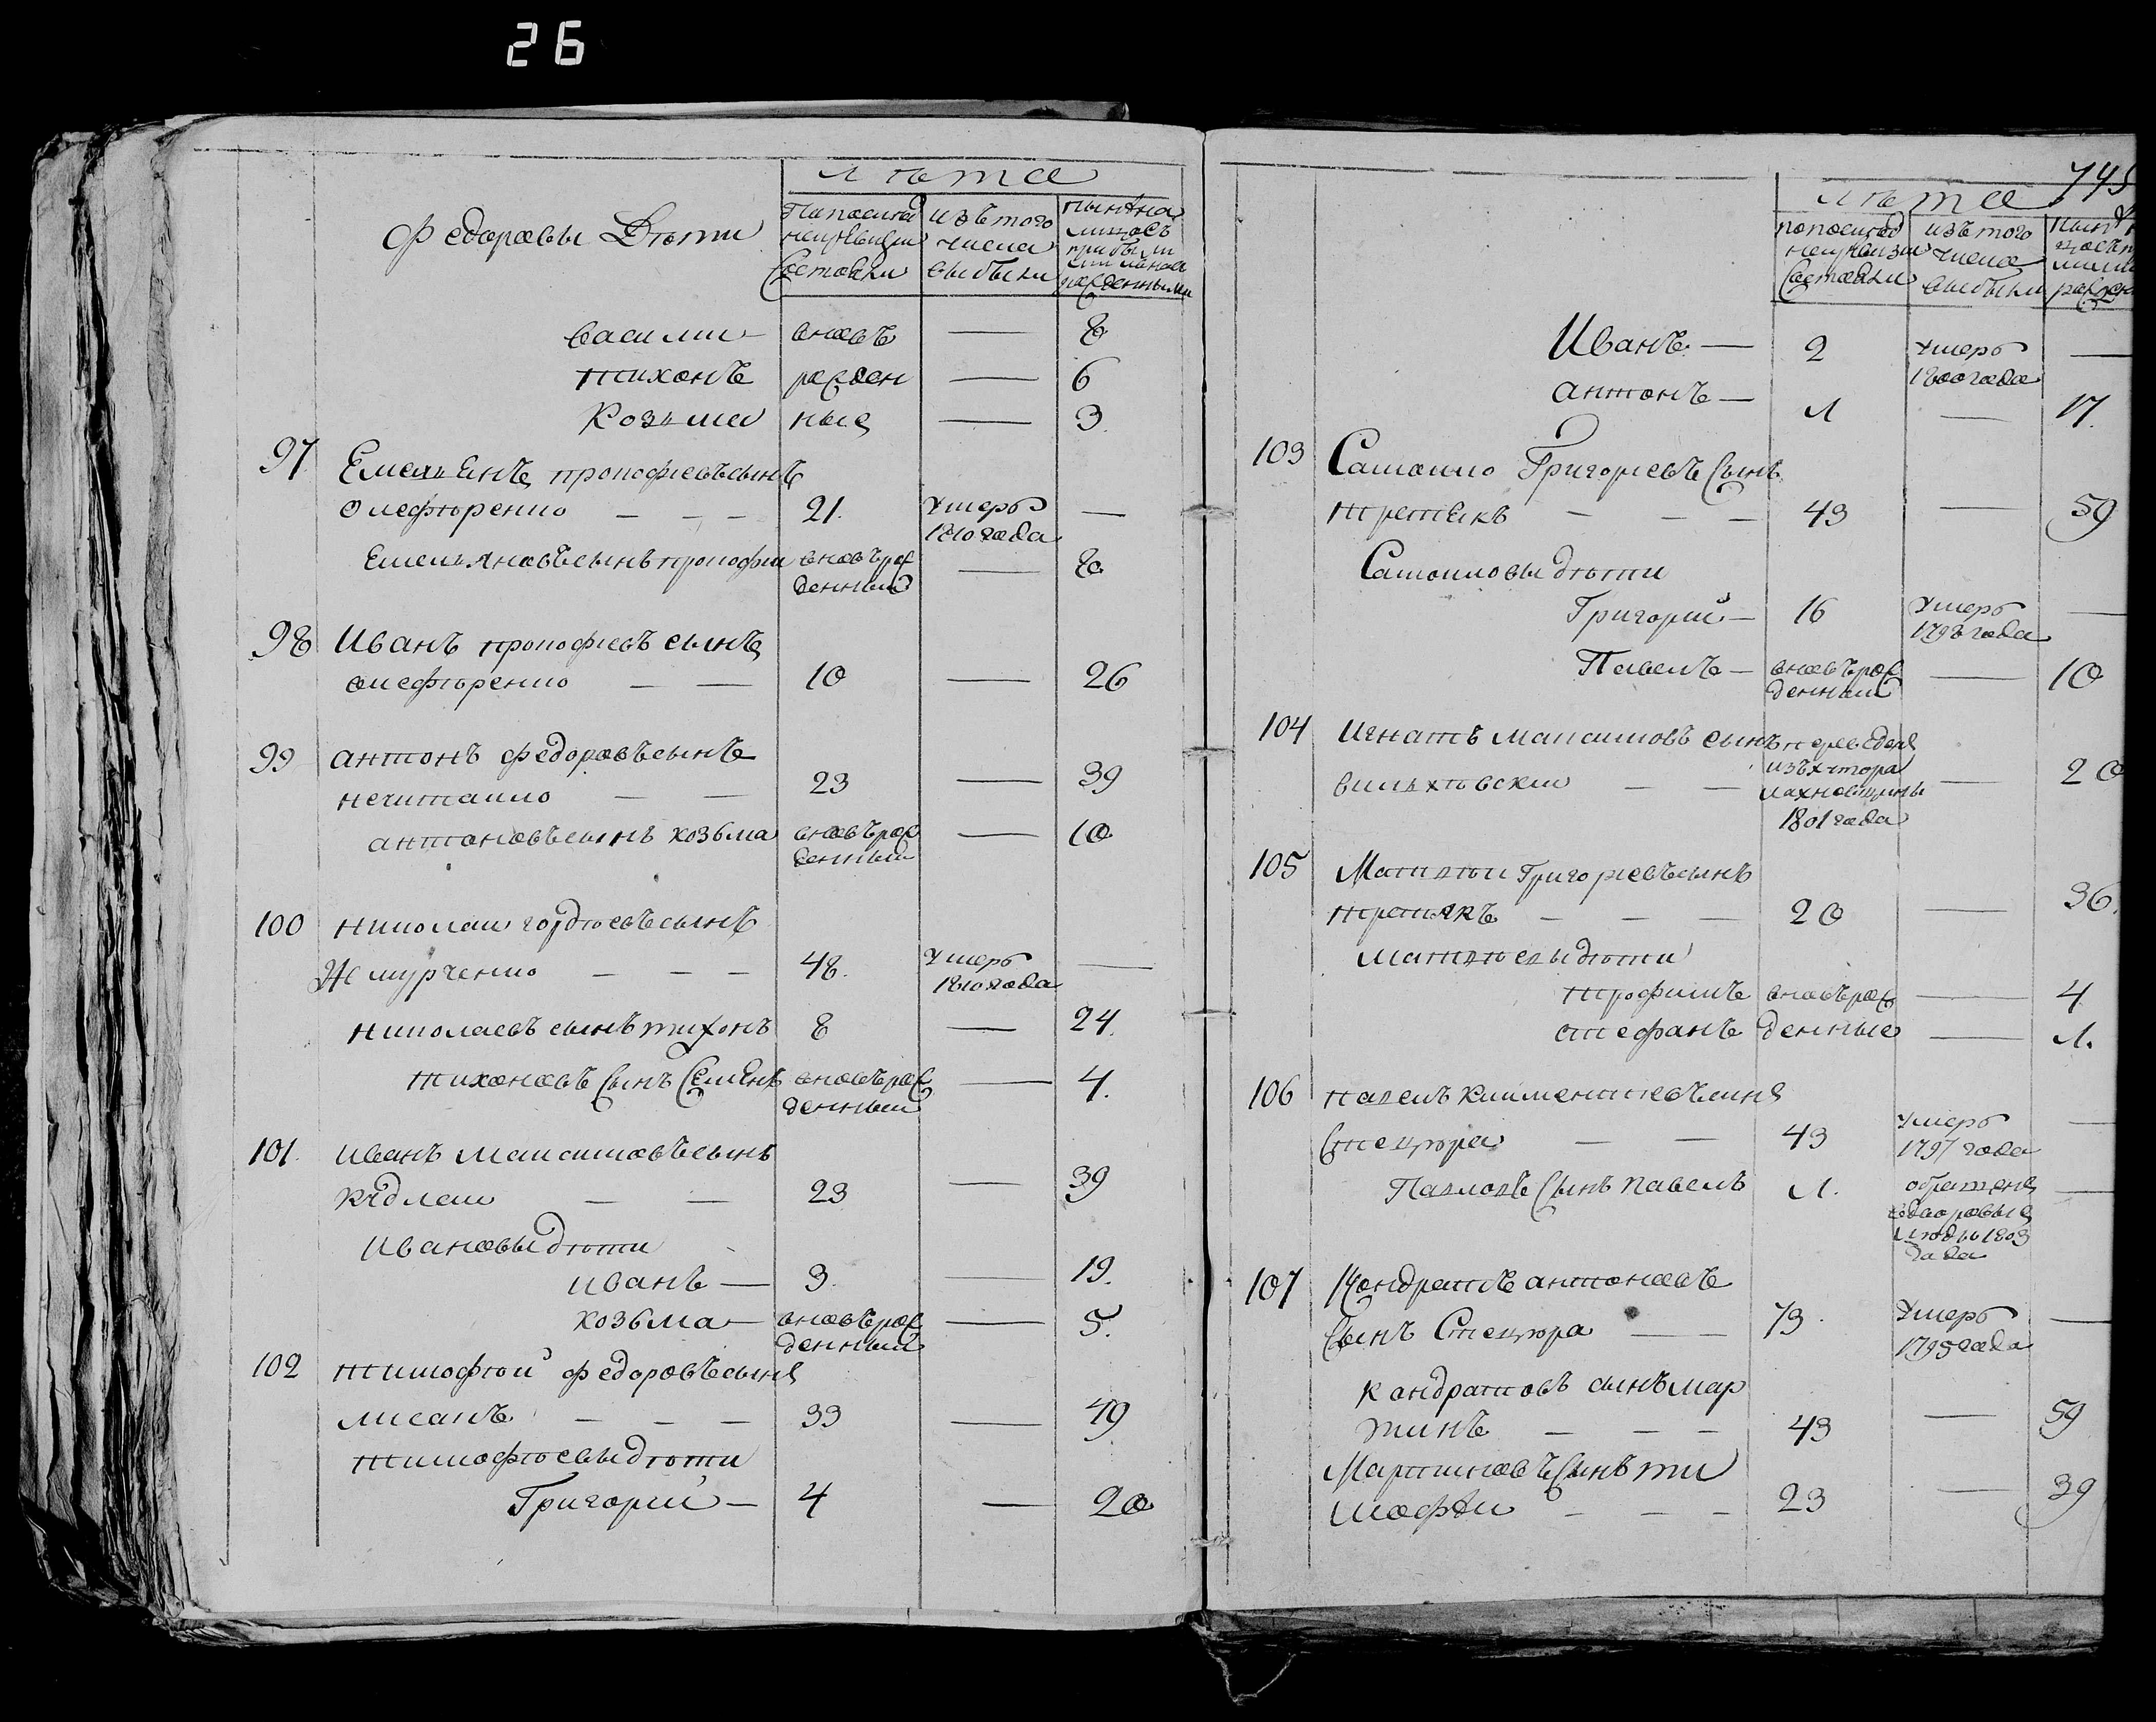 26
лѣта
Федоровы Дѣти
По последней ревизии состояли
изъ того числа выбыли
Василий — вновь — 8
Тихонъ рожден — 6
Козьма ные — 3.
97 Емельянъ прокофиевъ сынъ
олефиренко — — — 21. умеръ 1810 года —
Емельяновъ сынъ прокофий вновь рожденный — 8
98 Иванъ прокофиевъ сынъ
олефиренко — — 10 — 26
99 антонъ федоровъ сынъ
нечитайло — — 23 — 39
антоновъ сынъ козьма вновь рожденный — 10
100 николай гордѣевъ сынъ
Жмурченко — — — 48. умеръ 1810 года —
николаевъ сынъ тихонъ 8 — 24.
тихоновъ сынъ Семенъ вновь рожденный — 4.
101. иванъ Максимовъ сынъ
кудлай — — 23 — 39
ивановы дѣти
иванъ — 3. — 19.
козьма — вновь рожденный — 5.
102 тимофѣй федоровъ сынъ
лисакъ — — — 33 — 49
тимофѣевы дѣти
Григорий — 4 — 20
745
лѣта
по последней ревизии состояли
изъ того числа выбыли
Иванъ — 2 умеръ 1800 года —
антонъ — 1 — 17.
103 Самойло Григориевъ сынъ
третьякъ — — — 43 — 59
Самойловы дѣти
Григорий — 16 умеръ 1798 года —
Павелъ — вновь рожденный — 10
104 Игнатъ Максимовъ сынъ переведенъ
изъ хутора
1801 года — 20
105 Матвѣй Григориевъ сынъ
третьякъ — — — 20 — 36.
матвѣевы дѣти
трофимъ вновь рож — 4
стефанъ денные — 1.
106 павелъ климентиевъ сынъ
Стецюра — — 43 умеръ 1797 года —
Павловъ сынъ павелъ 1. обращенъ
в дворовые
люди 1803
года —
107 Кондратъ антоновъ
сынъ Стецюра — — 73. умеръ 1795 года —
кондратовъ сынъ мар
тинъ — — — 43 — 59
Мартиновъ сынъ ти
мофѣй — — — 23 — 39